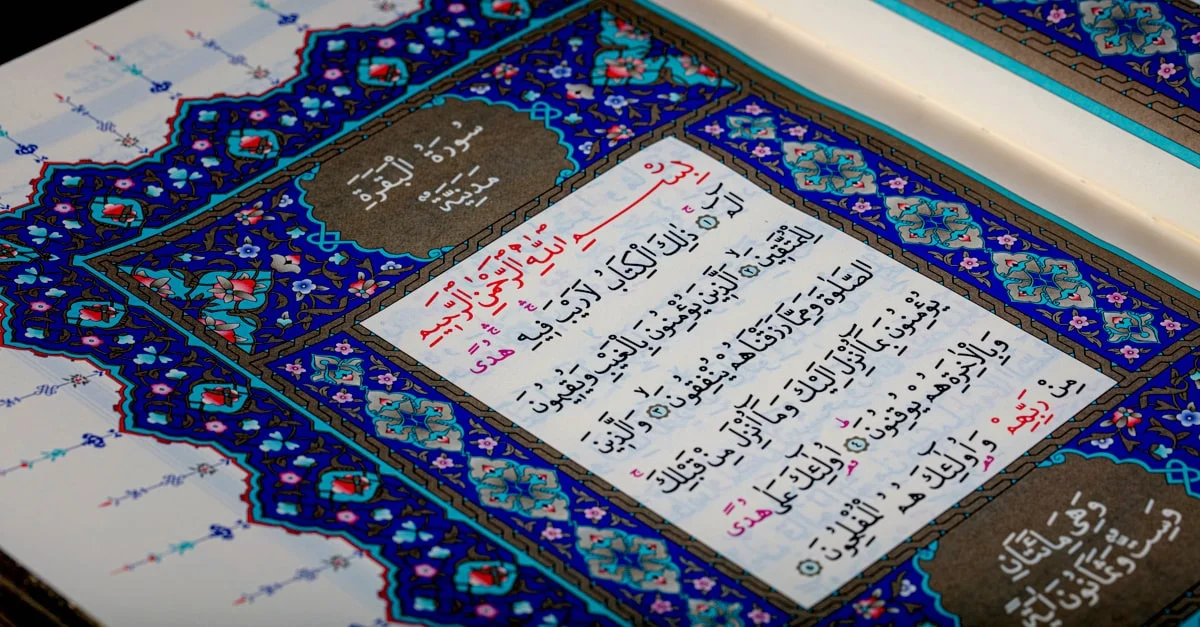 سُورَةُ الْبَقَرَةِ
مَدَنِيَّةٌ
بِسْمِ اللّٰهِ الرَّحْمٰنِ الرَّحِيمِ
الٓمٓ ۝١ ذٰلِكَ الْكِتَابُ لَا رَيْبَ فِيهِ هُدًى
لِلْمُتَّقِينَ ۝٢ اَلَّذِينَ يُؤْمِنُونَ بِالْغَيْبِ وَيُقِيمُونَ
الصَّلٰوةَ وَمِمَّا رَزَقْنَاهُمْ يُنْفِقُونَ ۝٣ وَالَّذِينَ
يُؤْمِنُونَ بِمَا اُنْزِلَ اِلَيْكَ وَمَا اُنْزِلَ مِنْ قَبْلِكَ
وَبِالْاٰخِرَةِ هُمْ يُوقِنُونَ ۝٤ اُولٰئِكَ عَلٰى هُدًى
مِنْ رَبِّهِمْ وَاُولٰئِكَ هُمُ الْمُفْلِحُونَ ۝٥
وَهِيَ مِائَتَانِ
وَسِتٌّ وَثَمَانُونَ